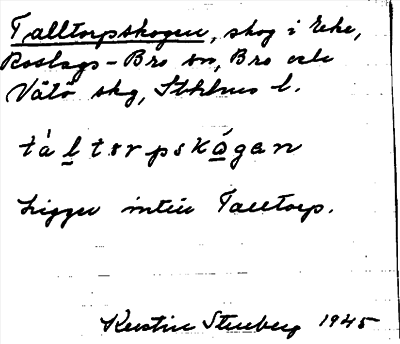 Talltorpskogen, skog i Eke,
Roslags-Bro sn, Bro och
Vätö skg, Sthlms l.
tàltorpskógan
Ligger intill Talltorp.
Kerstin Stenberg 1945